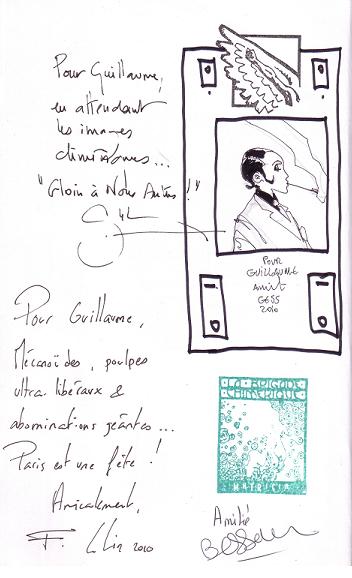 Pour Guillaume,
en attendant
les images
...
"Gloire à Notre !"
POUR
GUILLAUME
Amitié
GESS
2010
Pour Guillaume,
Mécanoïdes, poulpes
ultra-libéraux &
abominations géantes...
Paris est une fête !
Amicalement,
F. 2010
LA BRIGADE
CHIMERIQUE
MATRICIA
Amitié
Bessonneau